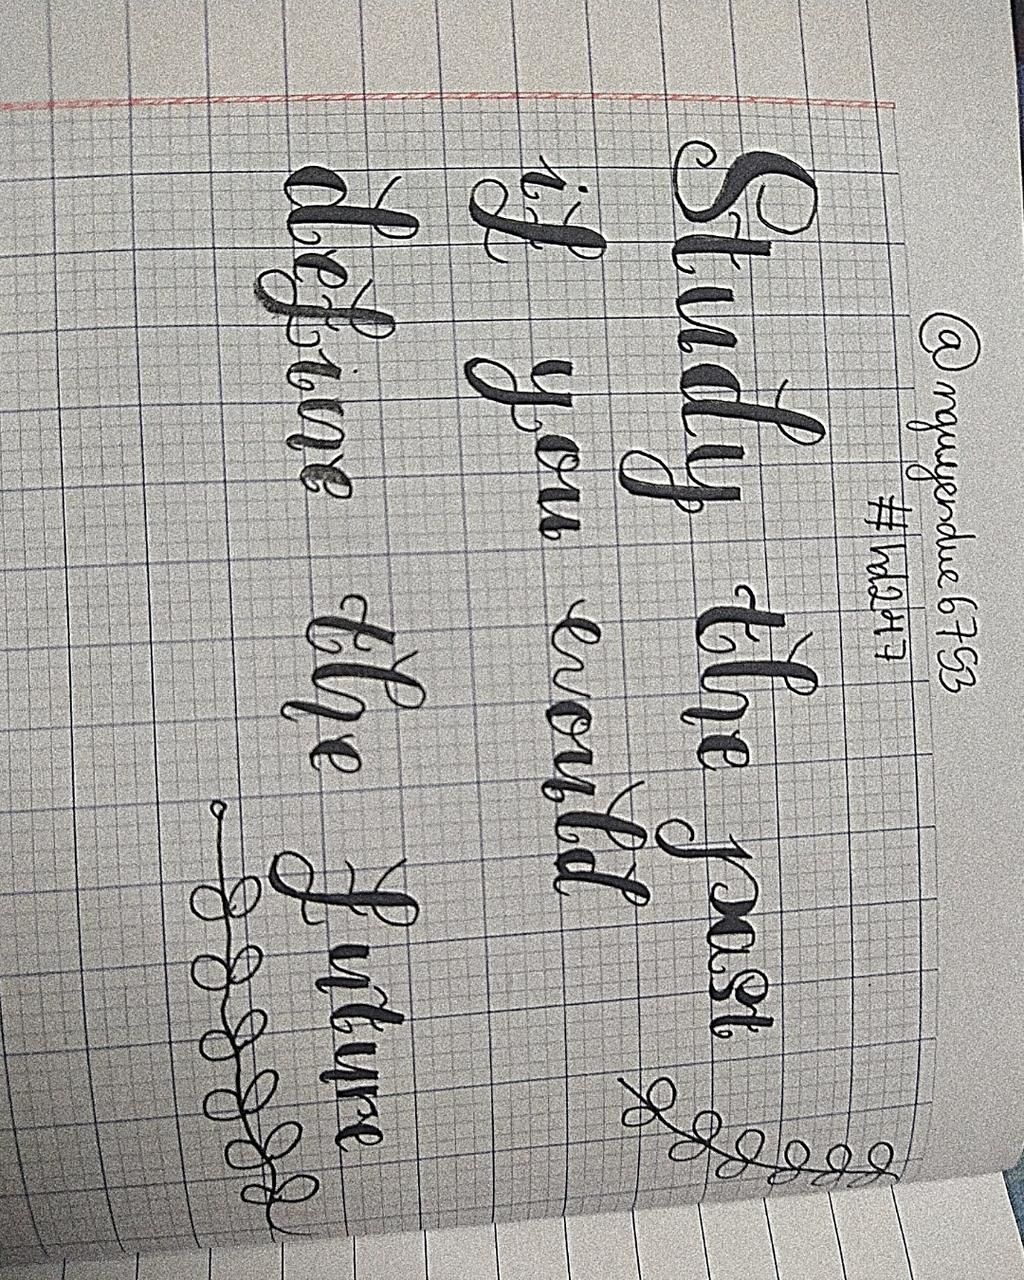 @nguyendue6753
#hd247
Study the past
if you would
define the future